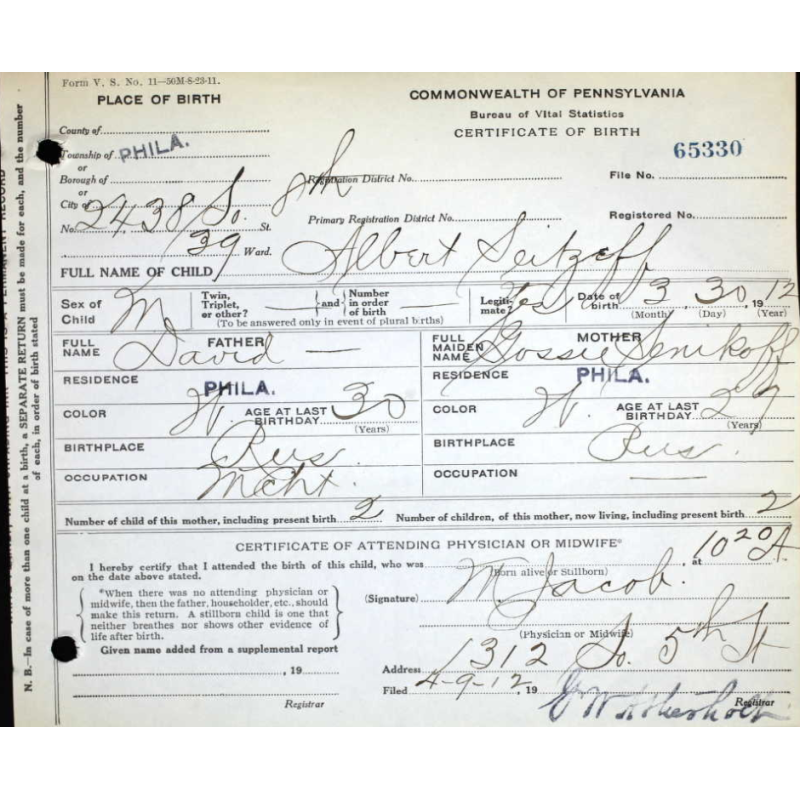 Form V. S. No. 11—50M-8-23-11.
PLACE OF BIRTH
COMMONWEALTH OF PENNSYLVANIA
Bureau of Vital Statistics
CERTIFICATE OF BIRTH
County of
Township of PHILA.
or
Borough of
or
City of
65330
Registration District No.
File No.
No. 2438 So. 8th St.
39 Ward.
Primary Registration District No.
Registered No.
FULL NAME OF CHILD Albert Seitzeff
Sex of Child M
Twin, Triplet, or other? and Number in order of birth
(To be answered only in event of plural births)
Legitimate? Yes
Date of birth 3 30 1912
(Month) (Day) (Year)
FULL NAME FATHER David —
FULL MAIDEN NAME MOTHER Gossie Senikoff
RESIDENCE PHILA.
RESIDENCE PHILA.
COLOR W. AGE AT LAST BIRTHDAY 30 (Years)
COLOR W. AGE AT LAST BIRTHDAY 29 (Years)
BIRTHPLACE Rus.
BIRTHPLACE Rus.
OCCUPATION Mcht.
OCCUPATION —
Number of child of this mother, including present birth 2
Number of children, of this mother, now living, including present birth 2
CERTIFICATE OF ATTENDING PHYSICIAN OR MIDWIFE*
I hereby certify that I attended the birth of this child, who was at 10 20 A.
on the date above stated. (Born alive or Stillborn)
*When there was no attending physician or
midwife, then the father, householder, etc., should
make this return. A stillborn child is one that
neither breathes nor shows other evidence of
life after birth.
(Signature) M. Jacob.
(Physician or Midwife)
Given name added from a supplemental report
, 19
Registrar
Address 1312 So. 5th St
Filed 4-9-12, 19
Registrar
N. B.—In case of more than one child at a birth, a SEPARATE RETURN must be made for each, and the number
of each, in order of birth stated